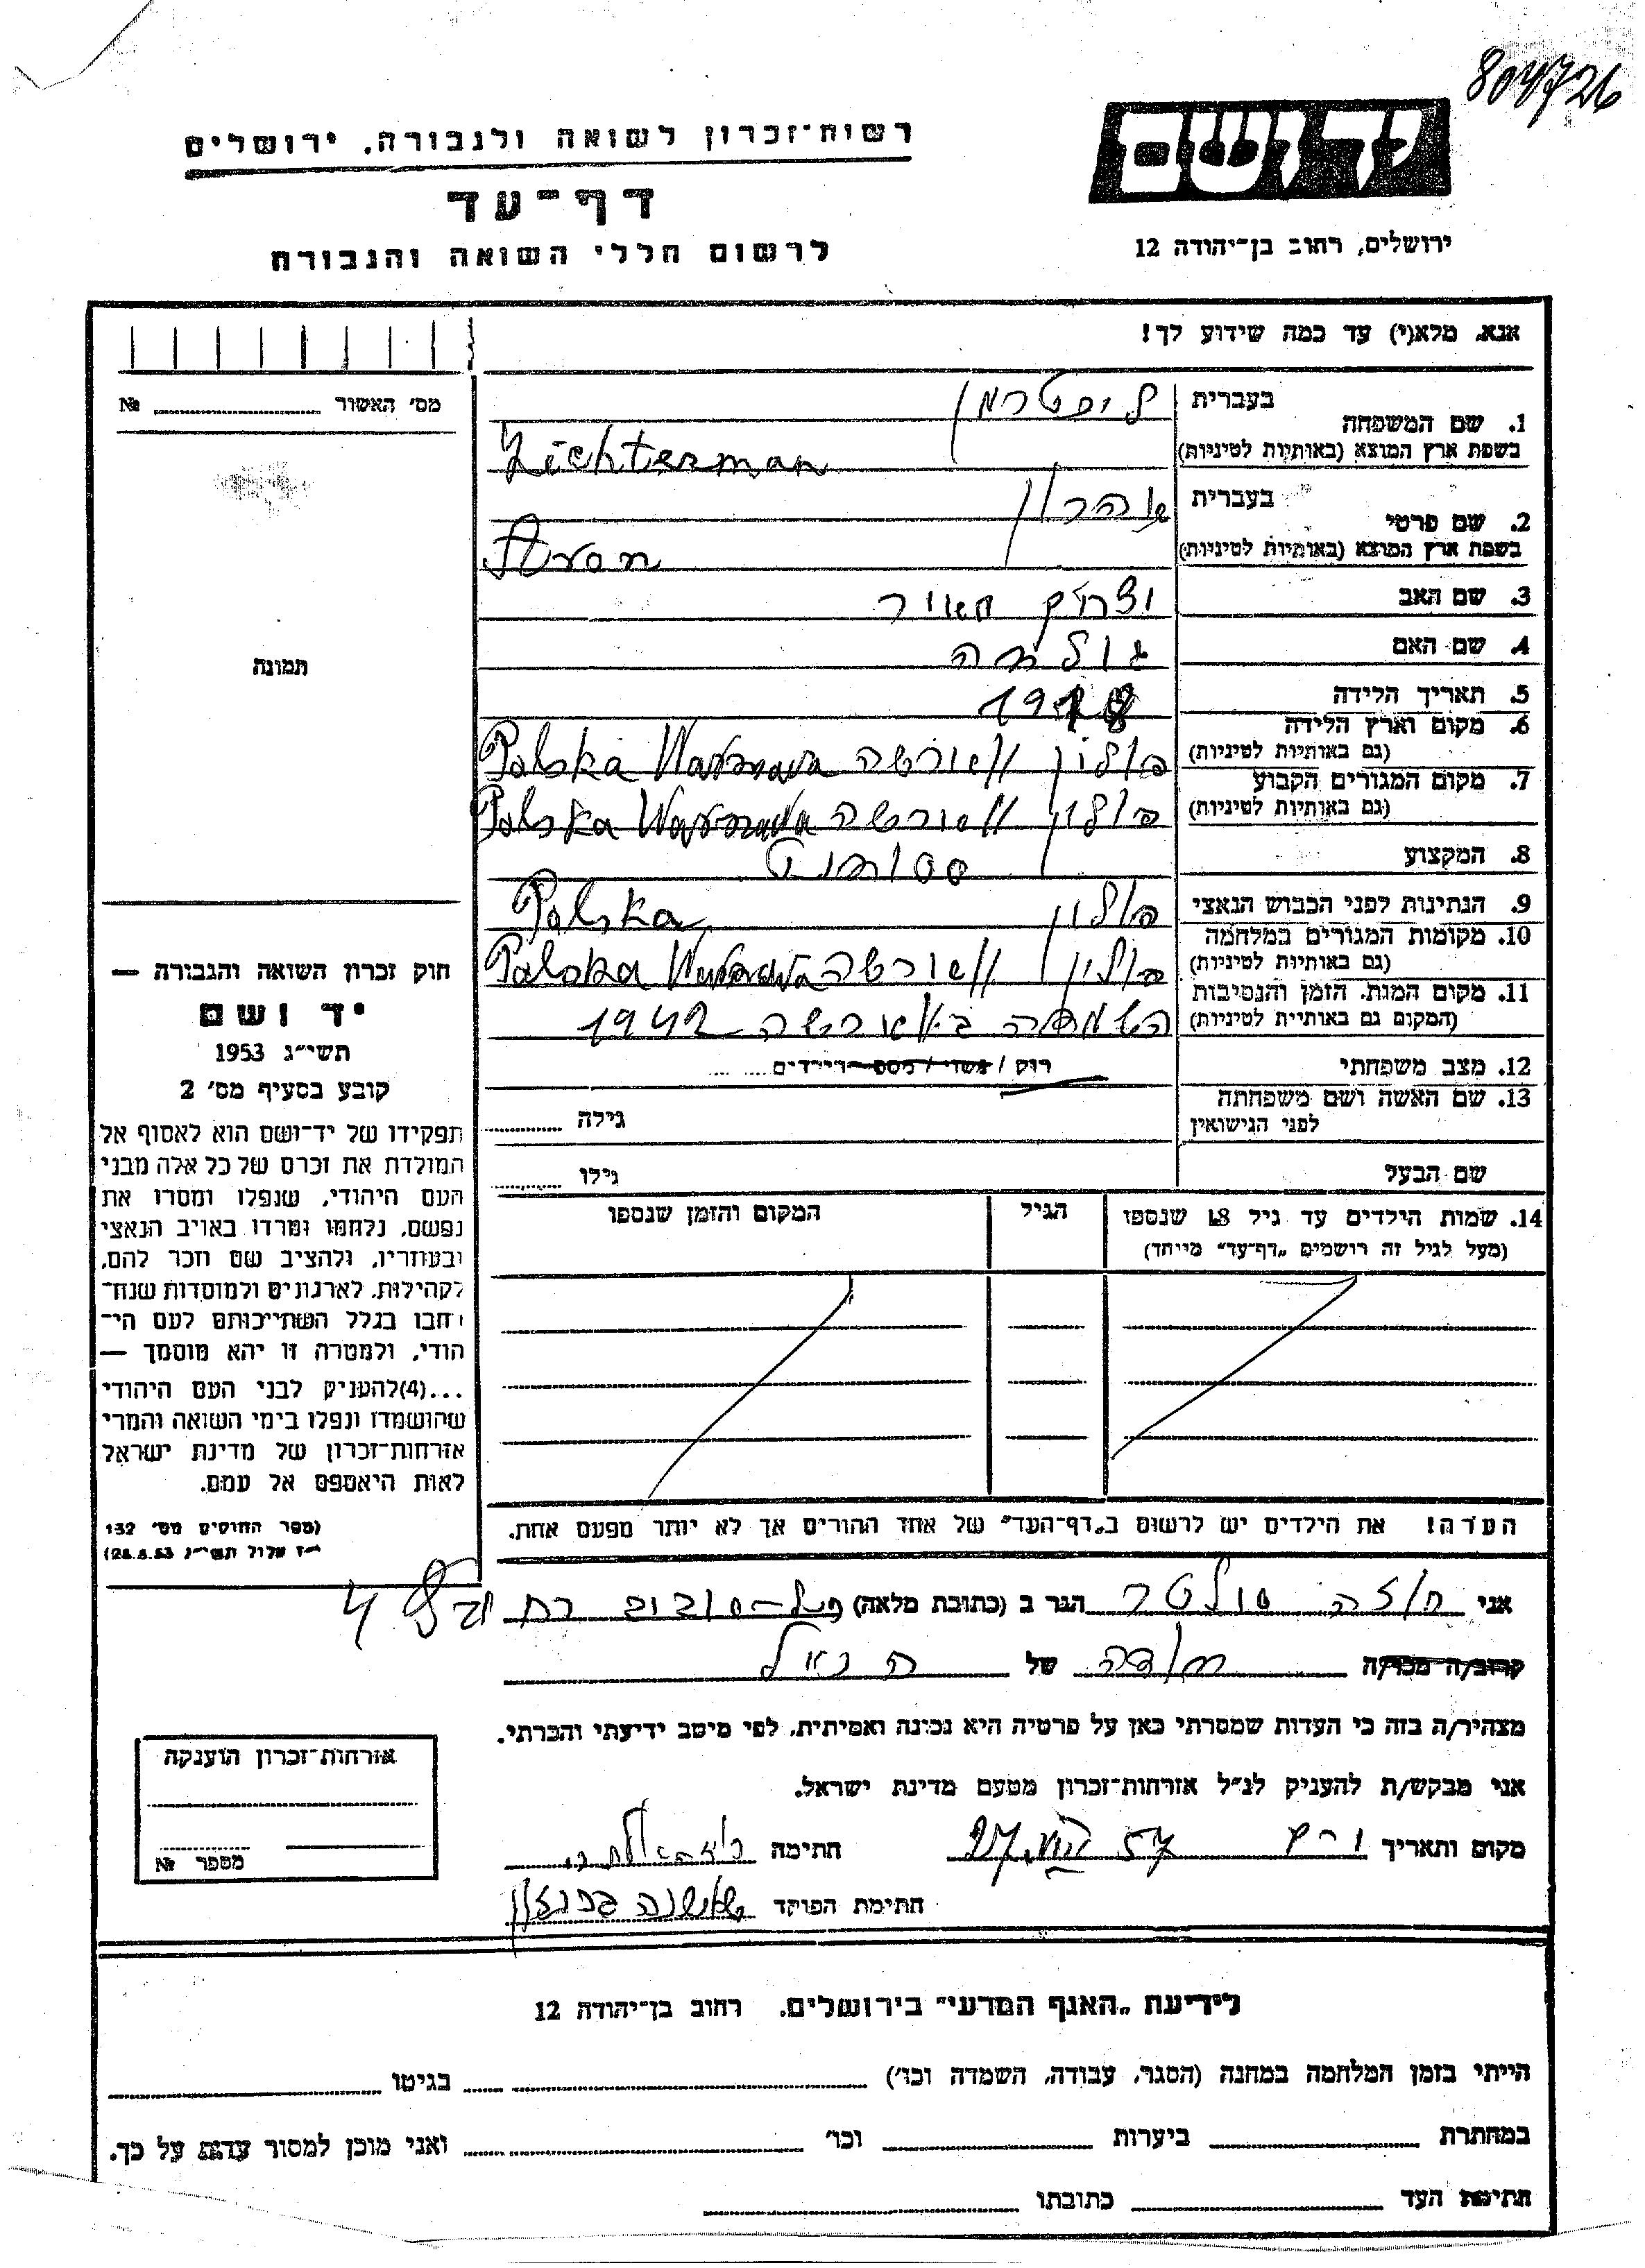 804726
רשות-זכרון לשואה ולגבורה, ירושלים
יד ושם
דף-עד
לרשום חללי השואה והגבורה
ירושלים, רחוב בן-יהודה 12
אנא, מלא(י) עד כמה שידוע לך!
מס' האשור №
1. שם המשפחה
בעברית ליכטרמן
בשפת ארץ המוצא (באותיות לטיניות) Lichterman
2. שם פרטי
בעברית אהרון
בשפת ארץ המוצא (באותיות לטיניות) Aron
3. שם האב יצחק מאיר
4. שם האם גולדה
5. תאריך הלידה 1918
6. מקום וארץ הלידה
(גם באותיות לטיניות) פולין ווארשה Polska Warszawa
7. מקום המגורים הקבוע
(גם באותיות לטיניות) פולין ווארשה Polska Warszawa
8. המקצוע סטודנט
9. הנתינות לפני הכבוש הנאצי פולין Polska
10. מקומות המגורים במלחמה
(גם באותיות לטיניות) פולין ווארשה Polska Warszawa
11. מקום המות, הזמן והנסיבות
(המקום גם באותיות לטיניות) השמדה בווארשה 1942
12. מצב משפחתי רוק / נשוי / מספר הילדים
13. שם האשה ושם משפחתה
לפני הנישואין גילה
שם הבעל גילו
14. שמות הילדים עד גיל 18 שנספו
(מעל לגיל זה רושמים "דף-עד" מייחד)
הגיל
המקום והזמן שנספו
הערה! את הילדים יש לרשום ב"דף-העד" של אחד ההורים אך לא יותר מפעם אחת.
תמונה
חוק זכרון השואה והגבורה —
יד ושם
תשי"ג 1953
קובע בסעיף מס' 2
תפקידו של יד-ושם הוא לאסוף אל
המולדת את זכרם של כל אלה מבני
העם היהודי, שנפלו ומסרו את
נפשם, נלחמו ומרדו באויב הנאצי
ובעוזריו, ולהציב שם וזכר להם,
לקהילות, לארגונים ולמוסדות שנח-
רבו בגלל השתייכותם לעם הי-
הודי, ולמטרה זו יהא מוסמך —
...(4) להעניק לבני העם היהודי
שהושמדו ונפלו בימי השואה והמרי
אזרחות-זכרון של מדינת ישראל
לאות היאספם אל עמם.
(ספר החוקים מס' 132
י"ז אלול תשי"ג 28.8.53)
אני סולטר הגר ב (כתובת מלאה) רח 4
קרוב/ה מכר/ה דודה של הנ"ל
מצהיר/ה בזה כי העדות שמסרתי כאן על פרטיה היא נכונה ואמיתית, לפי מיטב ידיעתי והכרתי.
אני מבקש/ת להעניק לנ"ל אזרחות-זכרון מטעם מדינת ישראל.
מקום ותאריך 57 27 חתימה
חתימת הפוקד שושנה
אזרחות-זכרון הוענקה
מספר №
לידיעת "האגף המדעי" בירושלים, רחוב בן-יהודה 12
הייתי בזמן המלחמה במחנה (הסגר, עבודה, השמדה וכו') בגיטו
במחתרת ביערות וכו' ואני מוכן למסור עדות על כך.
חתימת העד כתובתו